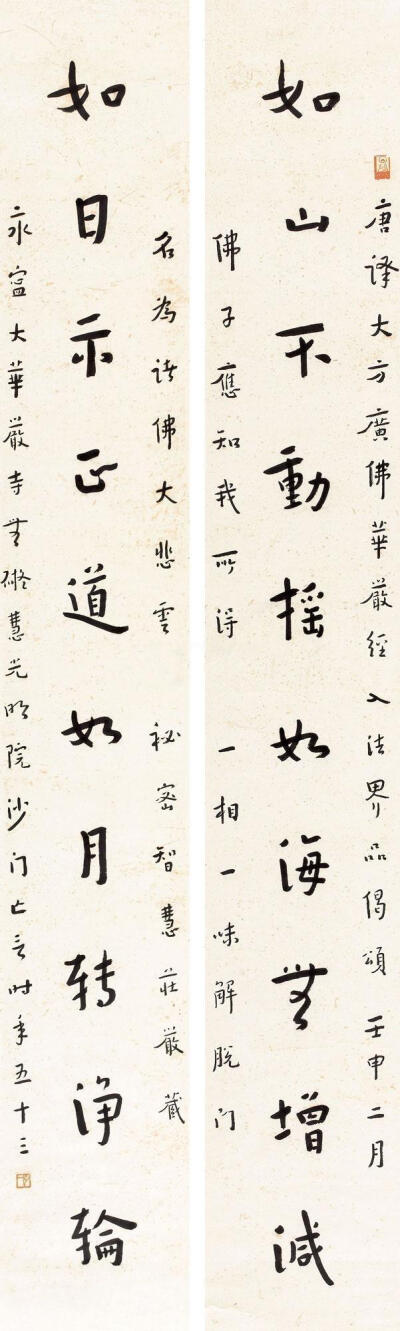 唐譯大方廣佛華嚴經入法界品偈頌 壬申二月
如山不動搖如海無增減
佛子應知我所得 一相一味解脫门
名為諸佛大悲雲 秘密智慧莊嚴藏
如日示正道如月转淨輪
永寧大華嚴寺無礙慧光明院沙门亡言时年五十三